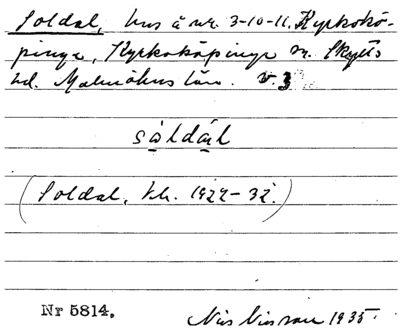 Soldal, hus å nr. 3-10-11. Kyrkokö-
pinge, Kyrkoköpinge sn. Skytts
hd. Malmöhus län. v. 3
såldál
(Soldal, kh. 1922-32.)
Nr 5814. Nils Nilsson 1935.